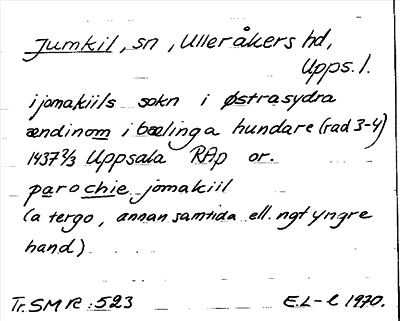 Jumkil, sn, Ulleråkers hd,
Upps. l.
i jomakiils sokn i østrasydra
ændinom i bælinga hundare (rad 3-4)
1437 2/3 Uppsala RAp or.
parochie jomakiil
(a tergo, annan samtida ell. ngt yngre
hand)
Tr. SMR: 523 E.L-l 1970.